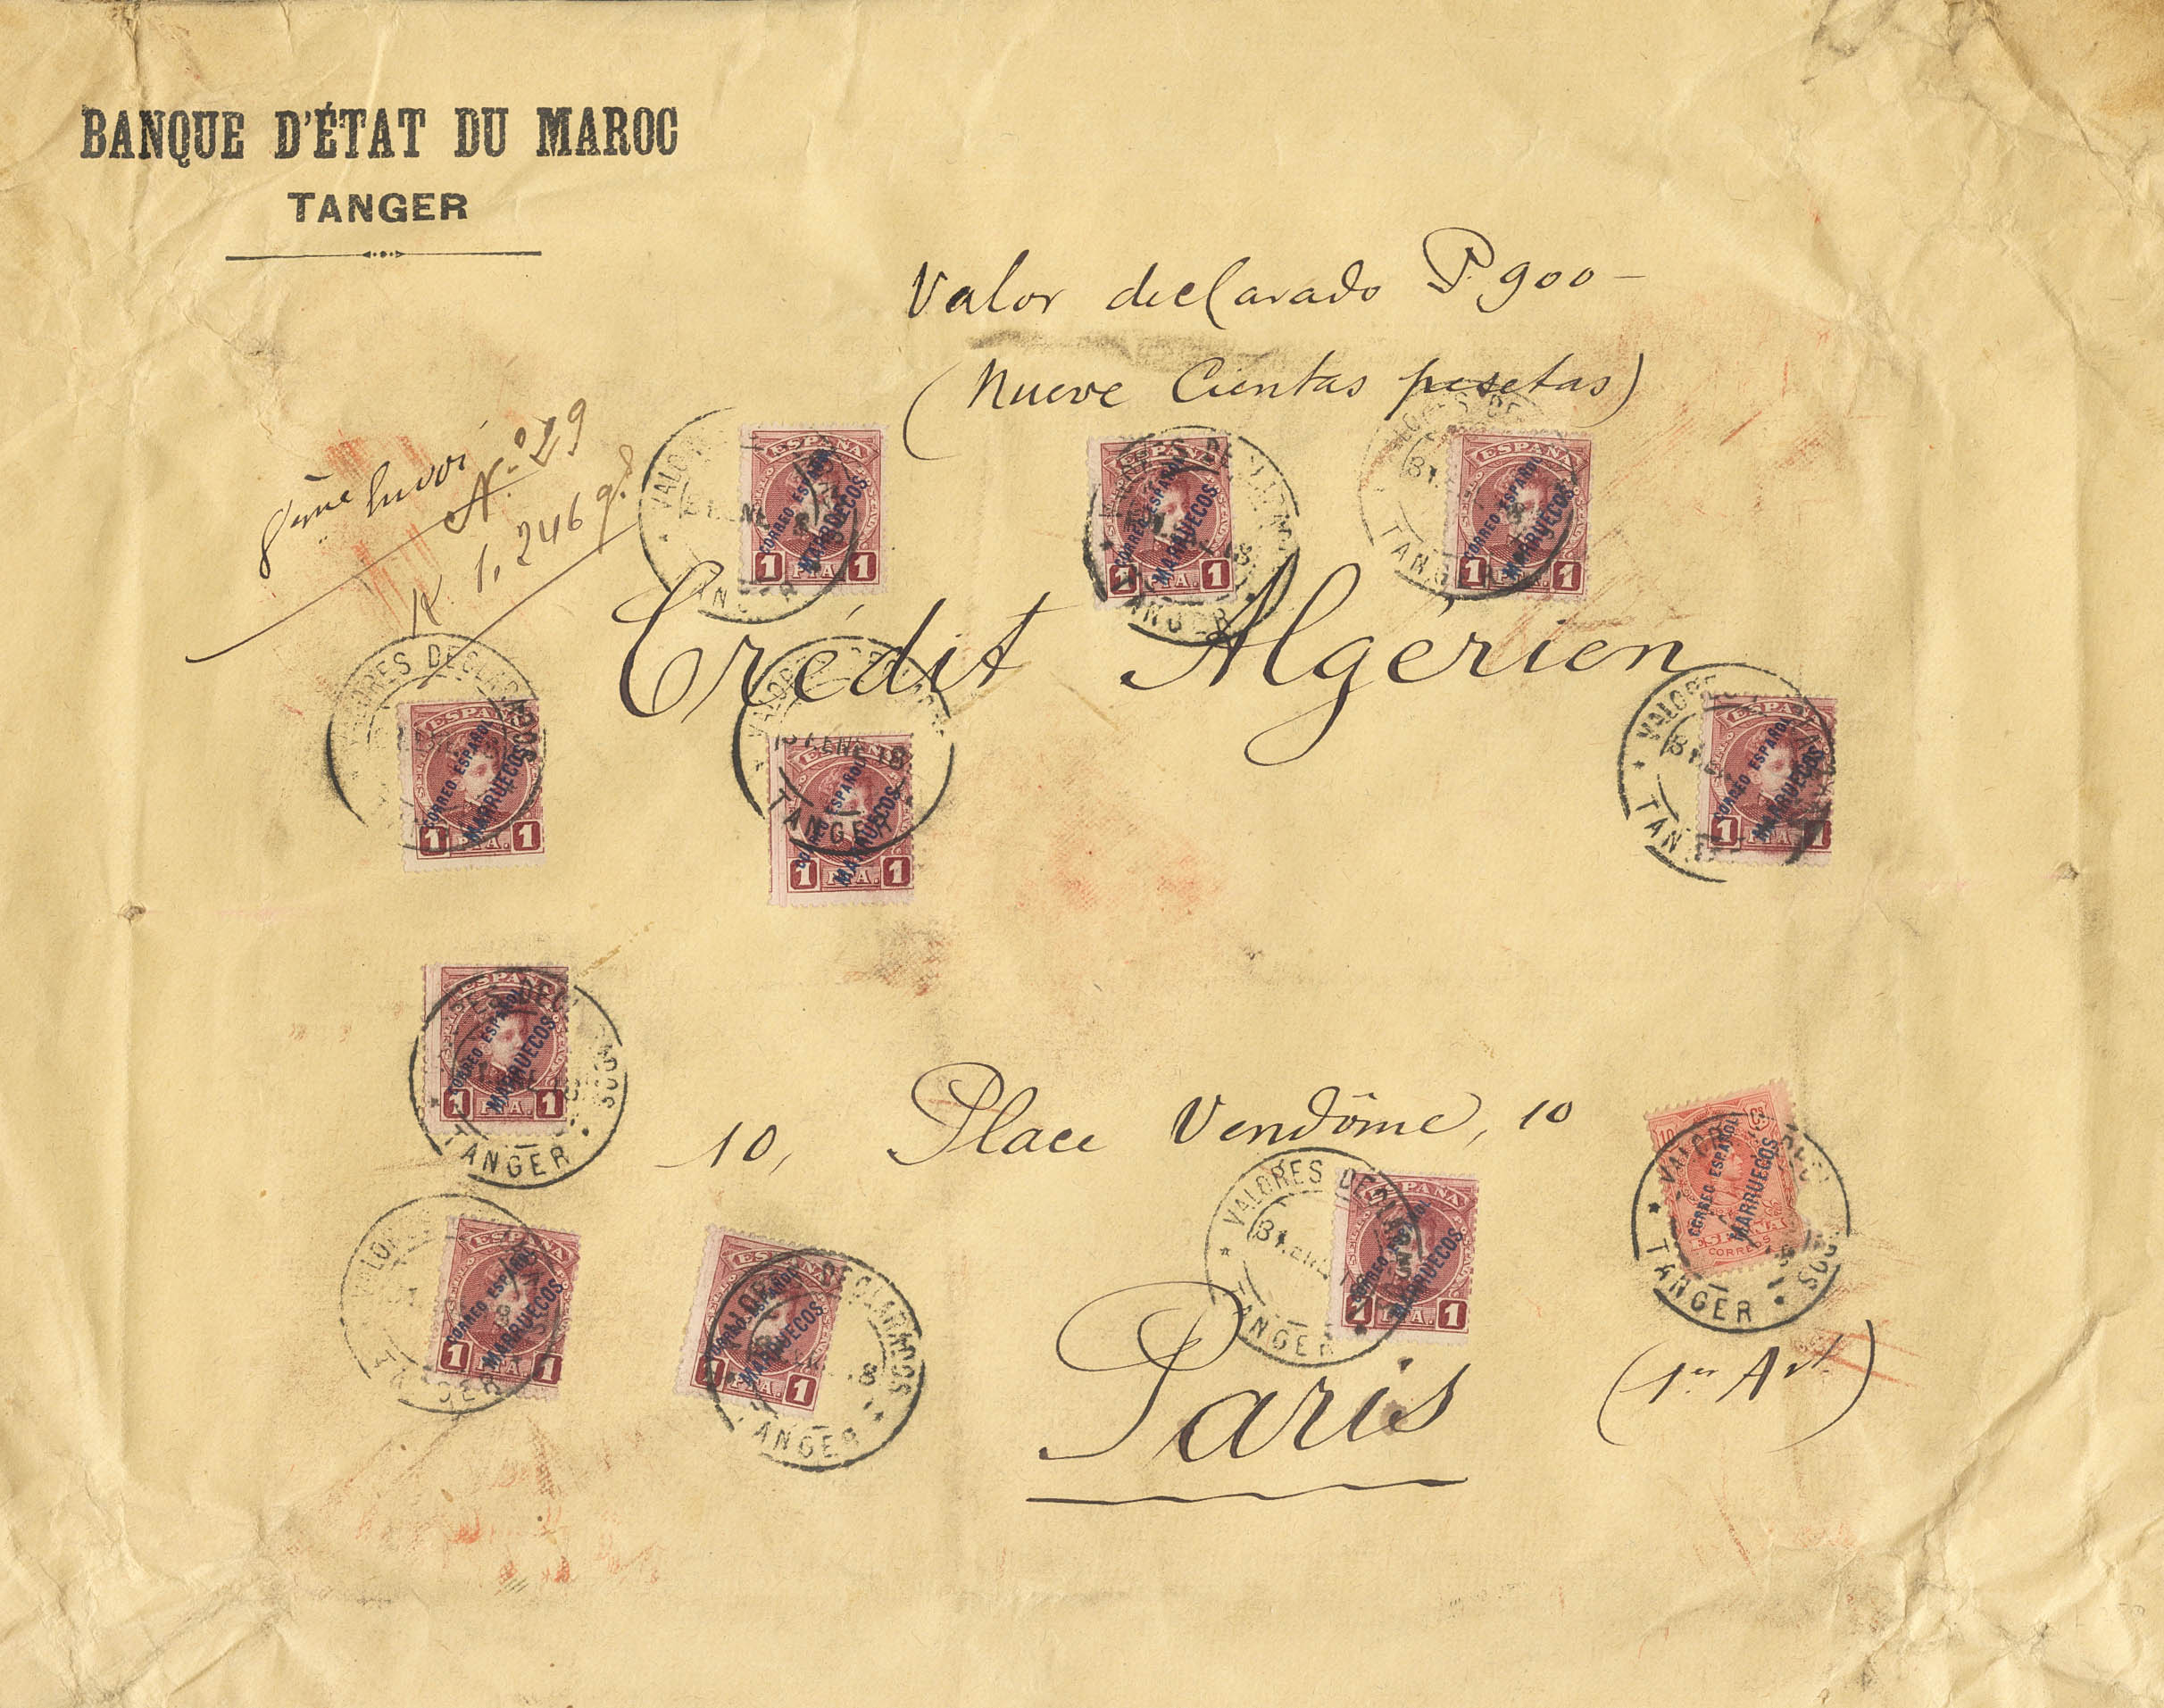 BANQUE D'ÉTAT DU MAROC
TANGER
Valor declarado P. 900 –
(Nueve Cientas pesetas)
N.º 29
K 1,246 g.
VALORES TANGER
ESPAÑA CORREO ESPAÑOL MARRUECOS 1 PTA. 1
VALORES DE TANGER
ESPAÑA CORREO ESPAÑOL MARRUECOS 1 PTA. 1
TANGER
ESPAÑA CORREO ESPAÑOL MARRUECOS 1 PTA. 1
Crédit Algérien
VALORES DECLARADOS
ESPAÑA CORREO ESPAÑOL MARRUECOS 1 PTA. 1
VALORES TANGER
CORREO ESPAÑOL MARRUECOS 1 PTA. 1
VALORES TANGER
ESPAÑA CORREO ESPAÑOL MARRUECOS 1 PTA. 1
TANGER
ESPAÑA CORREO ESPAÑOL MARRUECOS 1 PTA. 1
10, Place Vendôme, 10
VALORES DECLARADOS 31 ENE TANGER
ESPAÑA CORREO ESPAÑOL MARRUECOS 1 PTA. 1
VALORES TANGER
10 Cs CORREO ESPAÑOL MARRUECOS ESPAÑA CORREOS
VALORES TANGER
ESPAÑA CORREO ESPAÑOL MARRUECOS 1 PTA. 1
VALORES DECLARADOS TANGER
ESPAÑA CORREO ESPAÑOL MARRUECOS 1 PTA. 1
Paris
(1er Art)